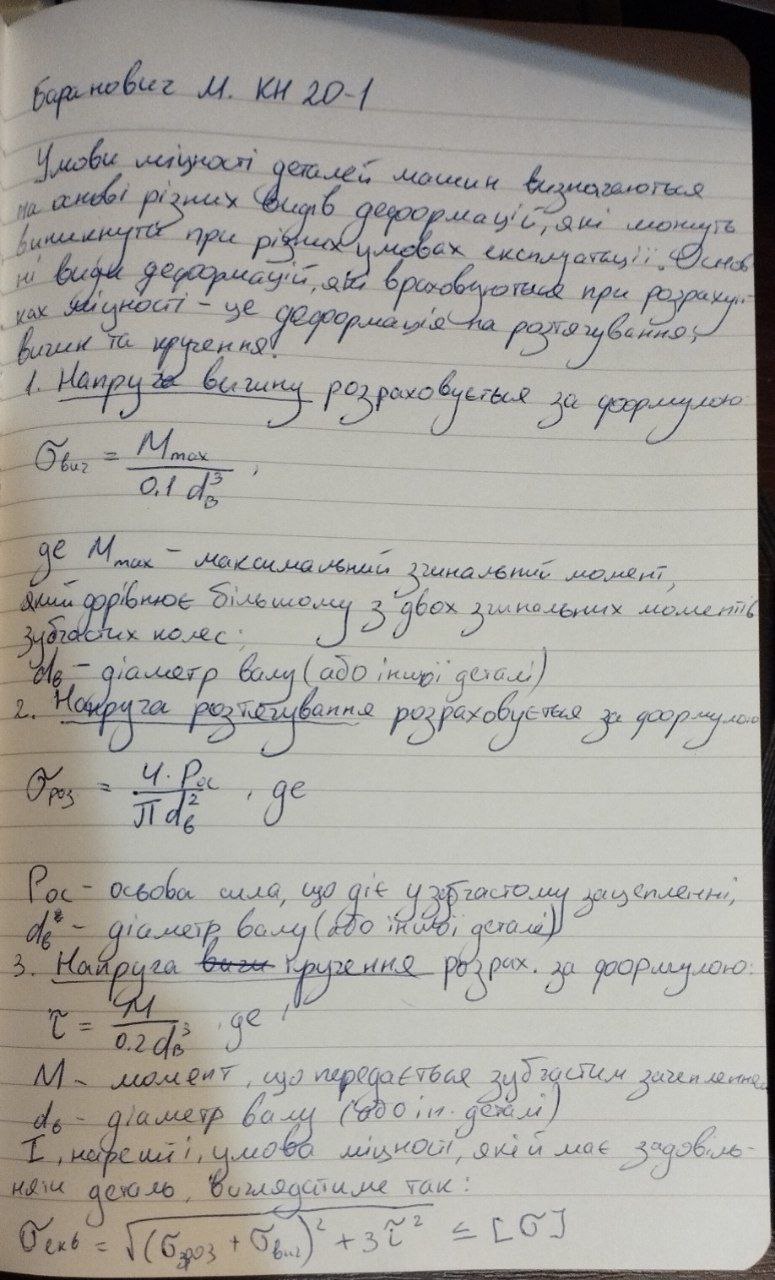 Баранович М. КН 20-1
Умови міцності деталей машин визначаються
на основі різних видів деформацій, які можуть
виникнути при різних умовах експлуатації. Основ
ні види деформацій, які враховуються при розрахун-
ках міцності - це деформація на розтягування,
вигин та кручення.
1. Напруга вигину розраховується за формулою
σвиг = Mmax / 0.1 dв³ ,
де Mmax - максимальний згинальний момент,
який дорівнює більшому з двох згинальних моментів
зубчастих колес;
dв - діаметр валу (або іншої деталі)
2. Напруга розтягування розраховується за формулою
σроз = 4·Pос / П dв² , де
Pос - осьова сила, що діє у зубчастому зацепленні,
dв - діаметр валу (або іншої деталі)
3. Напруга кручення розрах. за формулою:
τ = M / 0.2 dв³ , де
M - момент, що передається зубчастим зачепленням
dв - діаметр валу (або ін. деталі)
І, нарешті, умова міцності, якій має задовіль-
няти деталь, виглядатиме так:
σекв = √(σроз + σвиг)² + 3τ² ≤ [σ]